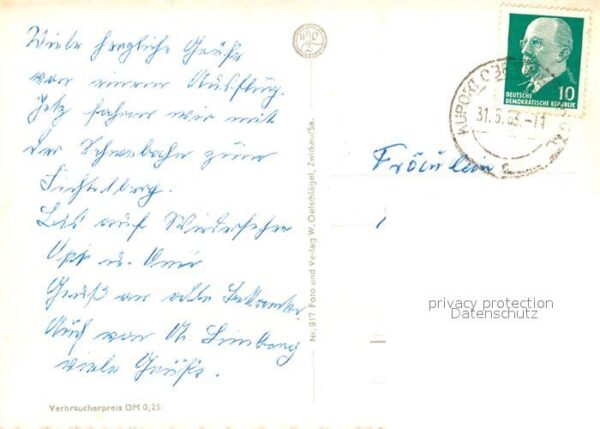 Viele herzliche Grüße
von einem Ausflug.
Jetz fahren wir mit
der Schwebebahn zum
Fichtelberg.
Bis auf Wiedersehn
Gruß an alle Bekannten
Auch von
viele Grüße.
Verbraucherpreis DM 0,25
Nr. 917 Foto und Verlag W. Oelschlägel, Zwickau/Sa.
10
DEUTSCHE
DEMOKRATISCHE REPUBLIK
KURORT OBER
31.5.63.-11
Fräulein
privacy protection
Datenschutz